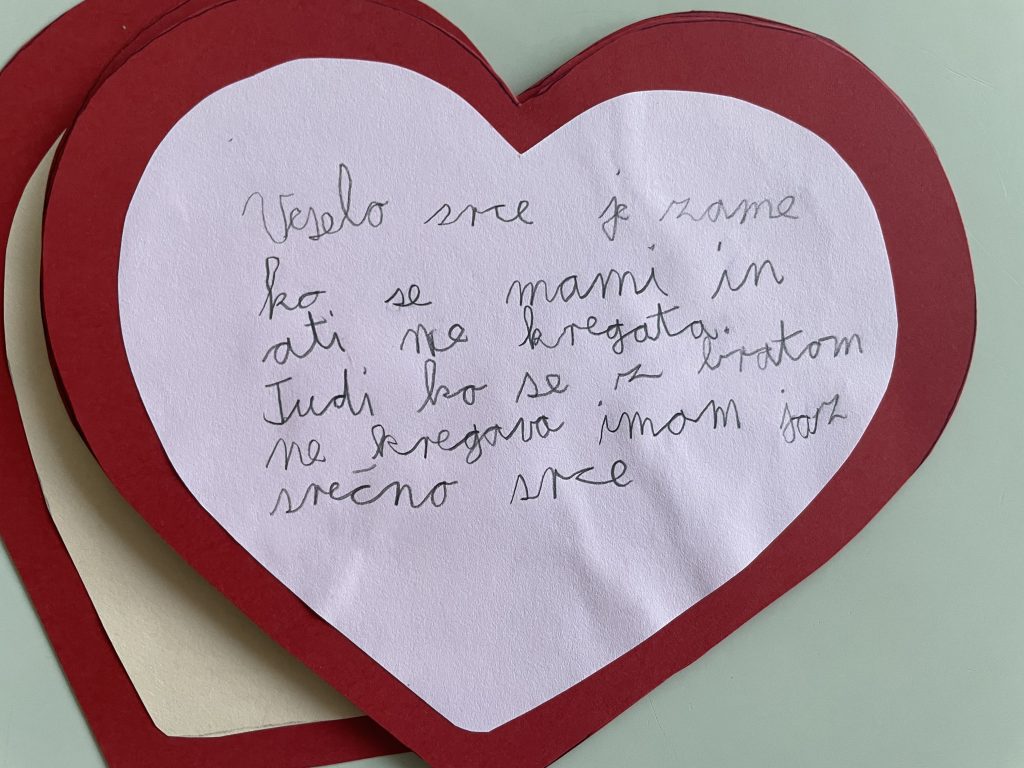 Veselo srce je zame
ko se mami in
ati ne kregata.
Tudi ko se z bratom
ne kregava imam jaz
srečno srce